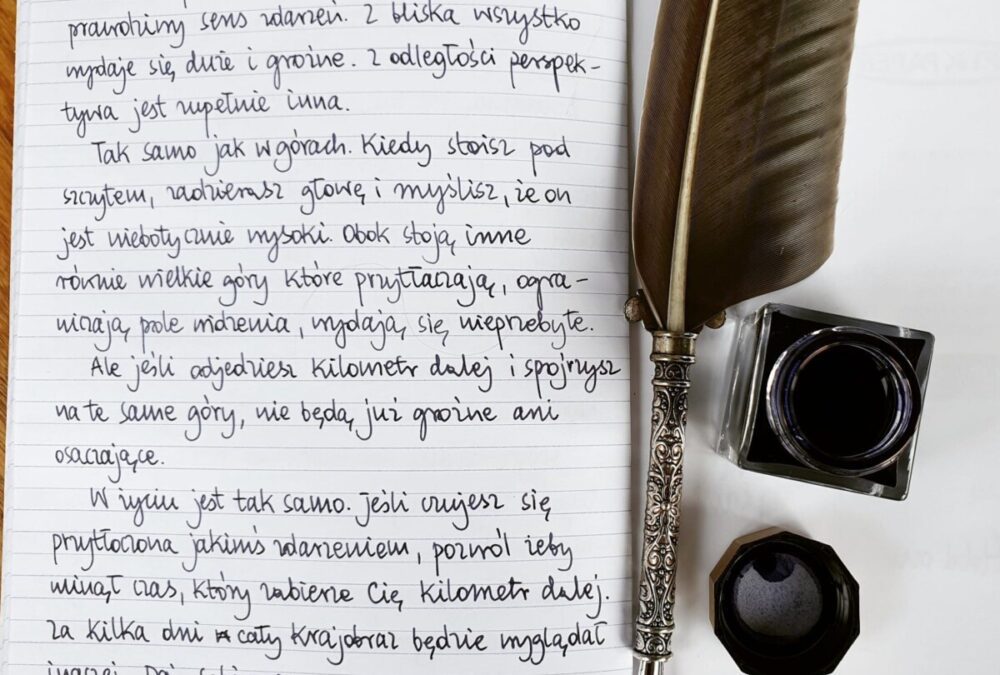 prawdziwy sens zdarzeń. Z bliska wszystko
wydaje się duże i groźne. Z odległości perspek-
tywa jest zupełnie inna.
Tak samo jak w górach. Kiedy stoisz pod
szczytem, zadzierasz głowę i myślisz, że on
jest niebotycznie wysoki. Obok stoją inne
równie wielkie góry które przytłaczają, ogra-
niczają pole widzenia, wydają się nieprzebyte.
Ale jeśli odjedziesz kilometr dalej i spojrzysz
na te same góry, nie będą już groźne ani
osaczające.
W życiu jest tak samo. Jeśli czujesz się
przytłoczona jakimś zdarzeniem, pozwól żeby
minął czas, który zabierze Cię kilometr dalej.
Za kilka dni cały krajobraz będzie wyglądał
inaczej. Daj sobie